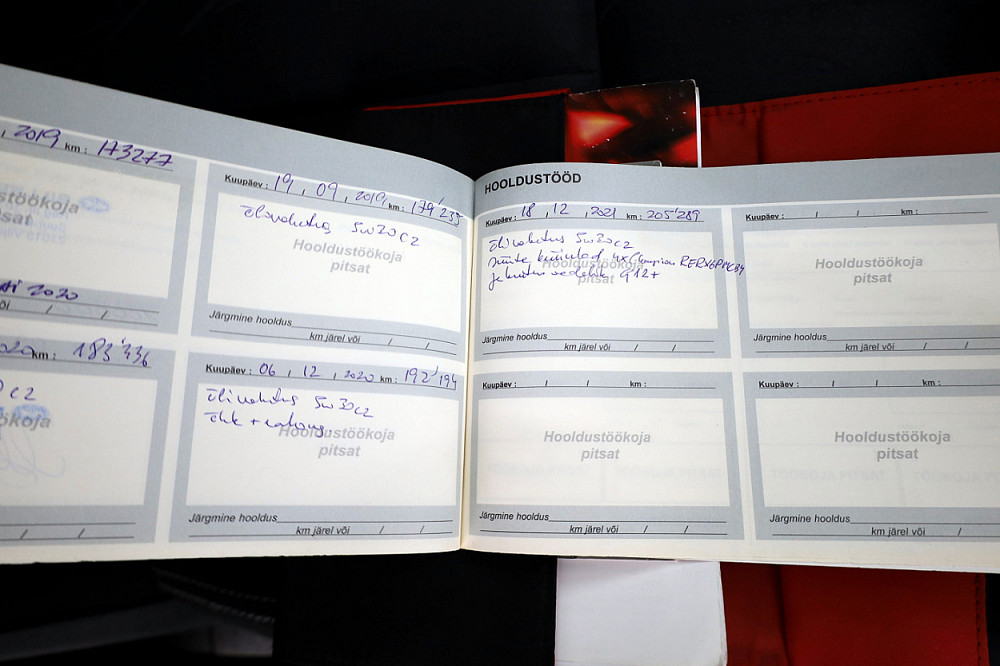 , 2019 km: 173277
stöökoja
sat
2020
õi / /
km: 183'436
C2
ökoja
/ /
Kuupäev: 19, 09, 2019 km: 179'235
Õlivahetus 5w30 C2
Hooldustöökoja
pitsat
Järgmine hooldus
km järel või / /
Kuupäev: 06, 12, 2020 km: 192'194
Õlivahetus 5w30 C2
Õhk +
Hooldustöökoja
pitsat
Järgmine hooldus
km järel või / /
HOOLDUSTÖÖD
Kuupäev: 18, 12, 2021 km: 205'289
Õlivahetus 5w30 C2
süüte küünlad 4x Champion
Hooldustöökoja
jahutusvedelik G12+
pitsat
Järgmine hooldus
km järel või / /
Kuupäev: / / km:
Hooldustöökoja
pitsat
Järgmine hooldus
km järel või / /
Kuupäev: / / km:
Hooldustöökoja
pitsat
Järgmine hooldus
km järel või / /
Kuupäev: / / km:
Hooldustöökoja
pitsat
Järgmine hooldus
km järel või /